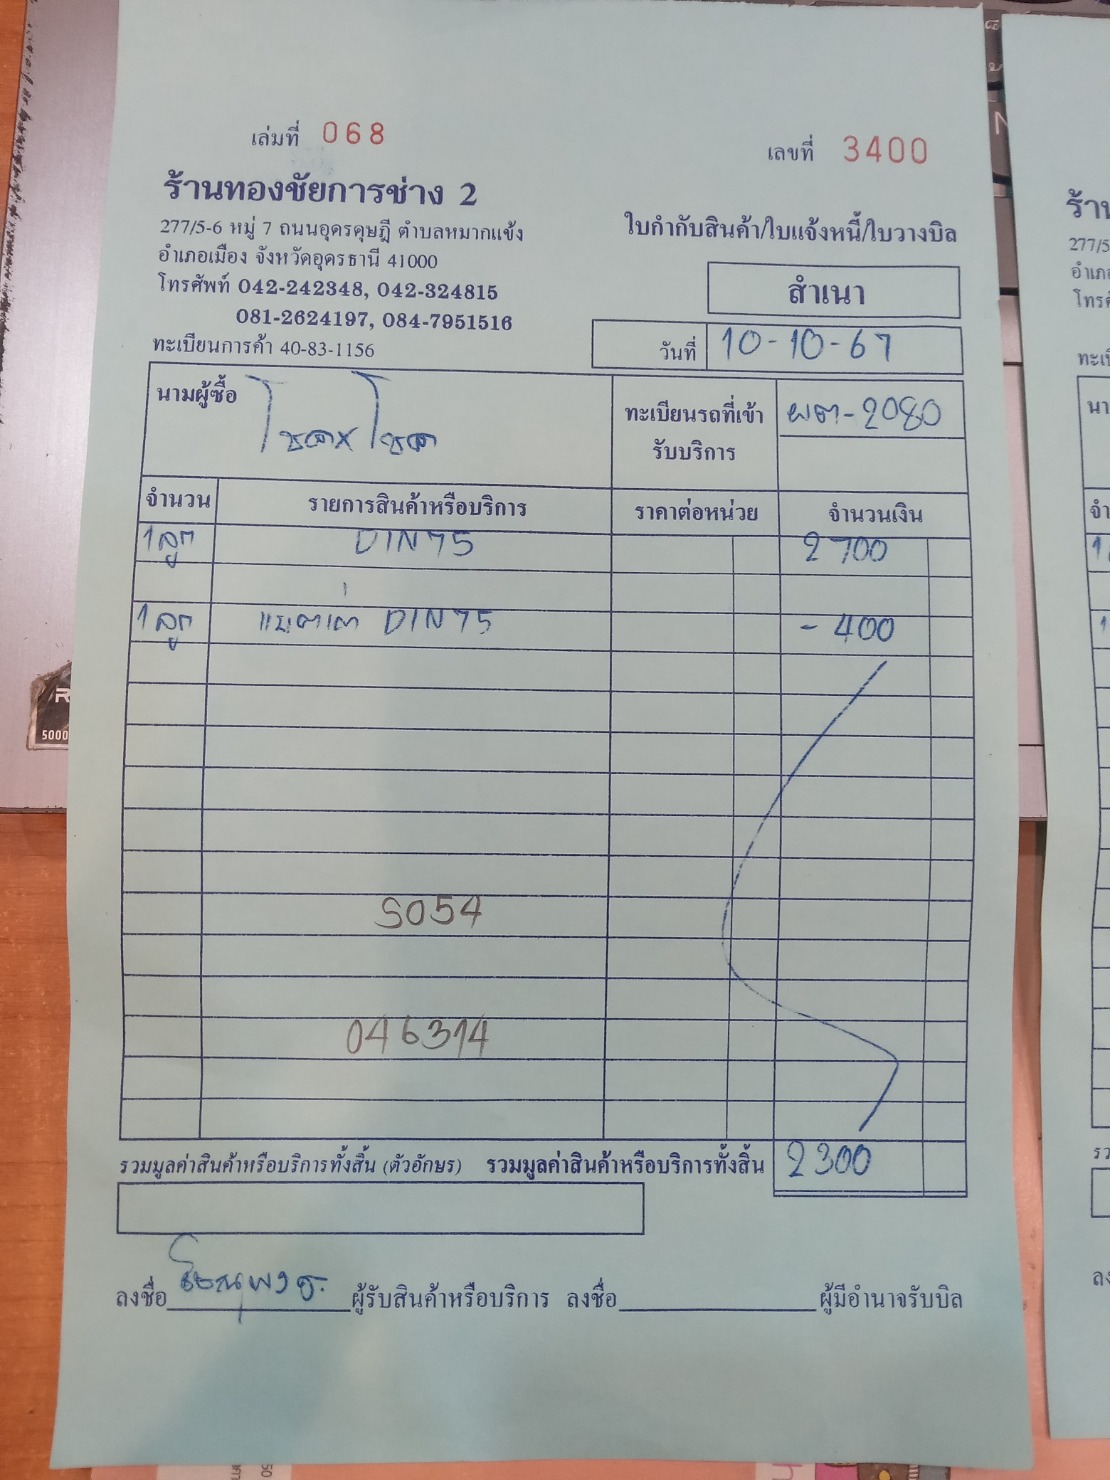 เล่มที่ 068
เลขที่ 3400
ร้านทองชัยการช่าง 2
277/5-6 หมู่ 7 ถนนอุดรดุษฎี ตำบลหมากแข้ง
อำเภอเมือง จังหวัดอุดรธานี 41000
โทรศัพท์ 042-242348, 042-324815
081-2624197, 084-7951516
ทะเบียนการค้า 40-83-1156
ใบกำกับสินค้า/ใบแจ้งหนี้/ใบวางบิล
สำเนา
วันที่ 10-10-67
นามผู้ซื้อ โชคxโชค
ทะเบียนรถที่เข้ารับบริการ ผต-2080
จำนวน รายการสินค้าหรือบริการ ราคาต่อหน่วย จำนวนเงิน
1 ลูก DIN 75 2700
1 ลูก DIN 75 - 400
S054
046314
รวมมูลค่าสินค้าหรือบริการทั้งสิ้น (ตัวอักษร) รวมมูลค่าสินค้าหรือบริการทั้งสิ้น 2300
ลงชื่อ ผู้รับสินค้าหรือบริการ ลงชื่อ ผู้มีอำนาจรับบิล